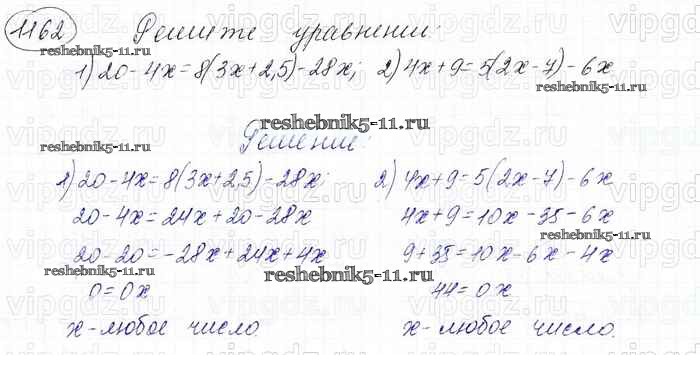 1162 Решите уравнении:
1) 20 - 4x = 8(3x + 2,5) - 28x; 2) 4x + 9 = 5(2x - 7) - 6x
Решении:
1) 20 - 4x = 8(3x + 2,5) - 28x;
20 - 4x = 24x + 20 - 28x
20 - 20 = -28x + 24x + 4x
0 = 0x
x - любое число.
2) 4x + 9 = 5(2x - 7) - 6x
4x + 9 = 10x - 35 - 6x
9 + 35 = 10x - 6x - 4x
44 = 0x
x - любое число.
reshebnik5-11.ru
reshebnik5-11.ru
reshebnik5-11.ru
reshebnik5-11.ru
reshebnik5-11.ru
reshebnik5-11.ru
reshebnik5-11.ru
vipgdz.ru